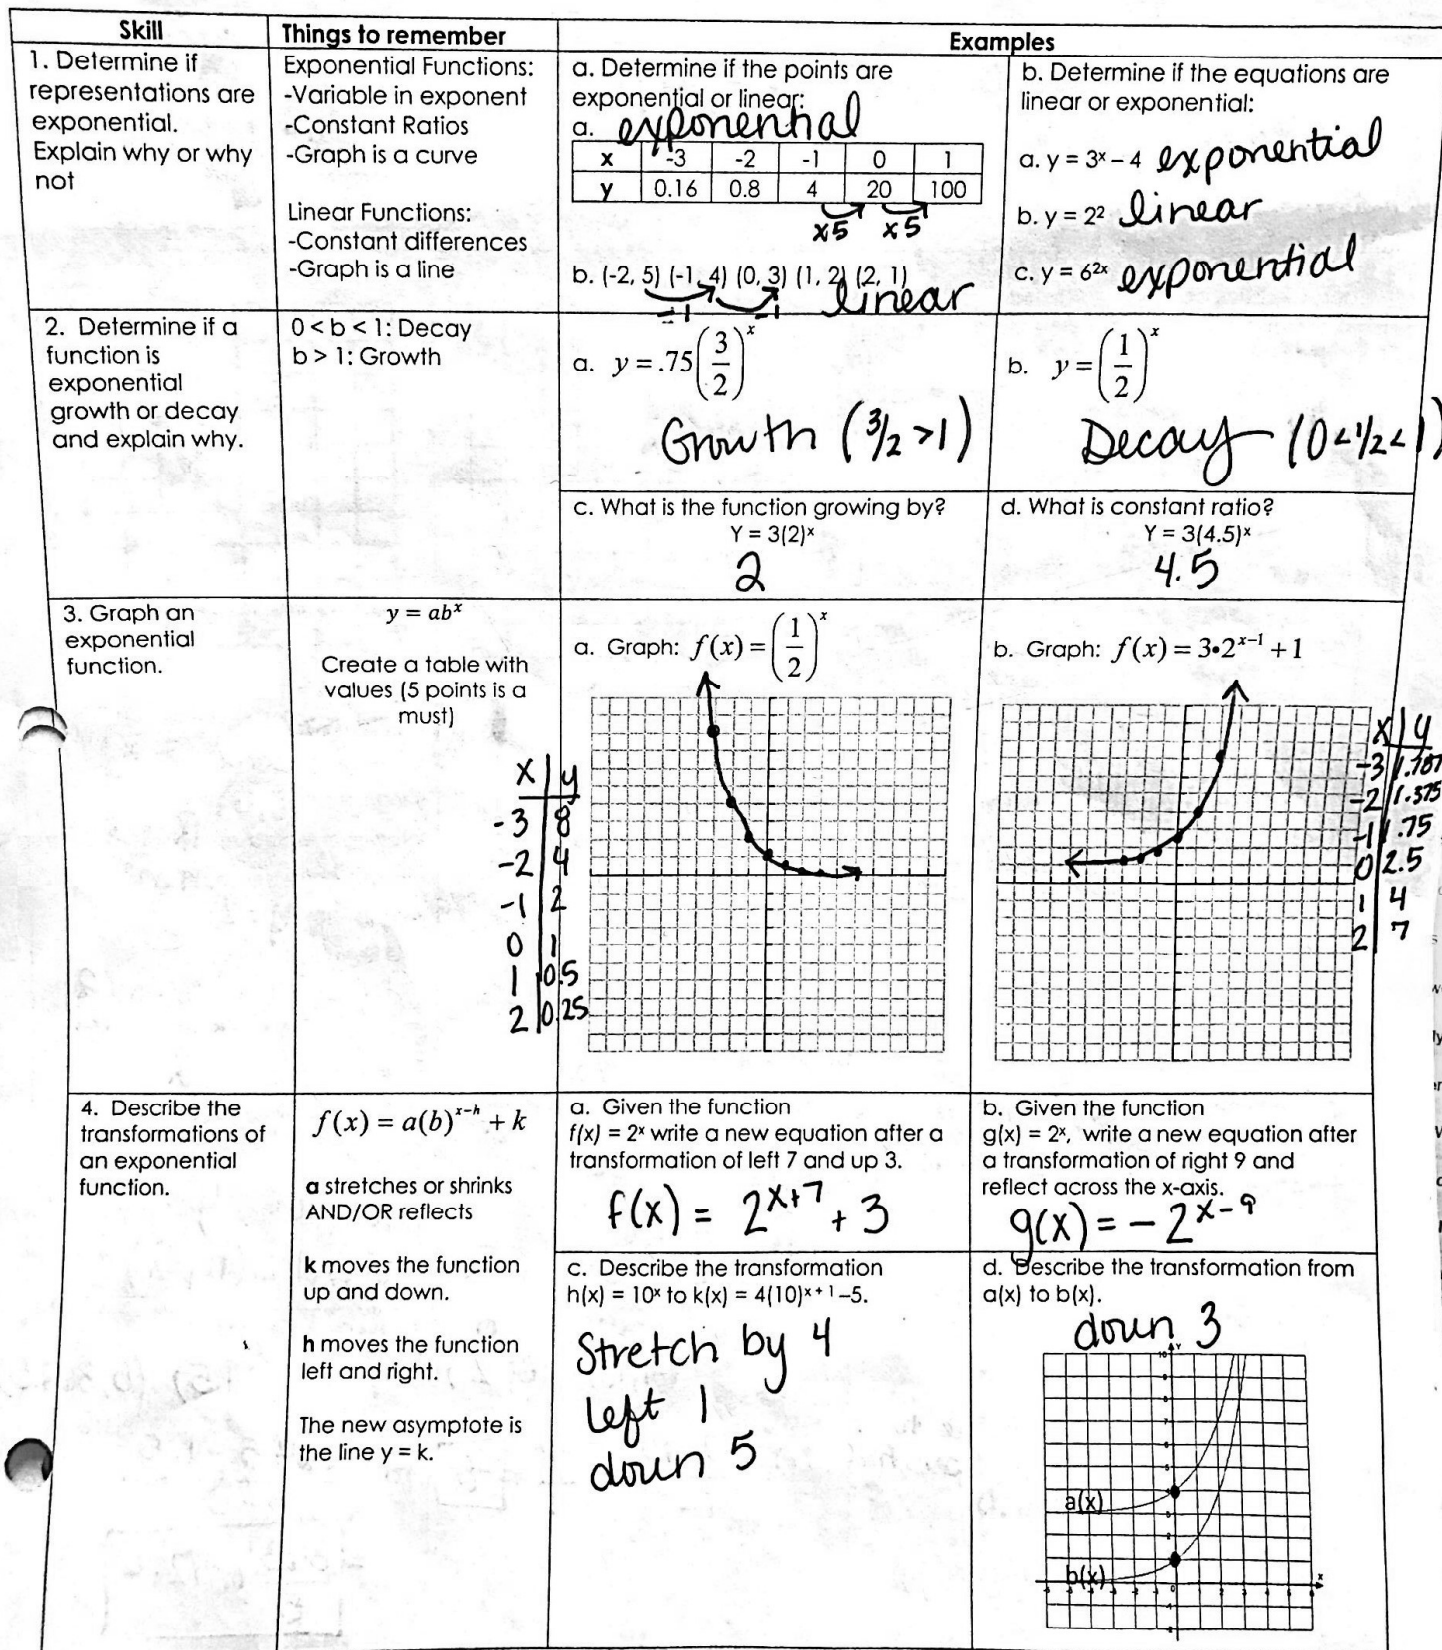 Skill Things to remember Examples
1. Determine if
representations are
exponential.
Explain why or why
not
Exponential Functions:
-Variable in exponent
-Constant Ratios
-Graph is a curve
Linear Functions:
-Constant differences
-Graph is a line
a. Determine if the points are
exponential or linear:
a. exponential
x -3 -2 -1 0 1
y 0.16 0.8 4 20 100
x5 x5
b. (-2, 5) (-1, 4) (0, 3) (1, 2) (2, 1)
-1 -1 linear
b. Determine if the equations are
linear or exponential:
a. y = 3ˣ – 4 exponential
b. y = 2² linear
c. y = 6²ˣ exponential
2. Determine if a
function is
exponential
growth or decay
and explain why.
0 < b < 1: Decay
b > 1: Growth
a. y = .75(3/2)ˣ
Growth (3/2 > 1)
b. y = (1/2)ˣ
Decay (0 < 1/2 < 1)
c. What is the function growing by?
Y = 3(2)ˣ
2
d. What is constant ratio?
Y = 3(4.5)ˣ
4.5
3. Graph an
exponential
function.
y = abˣ
Create a table with
values (5 points is a
must)
x y
-3 8
-2 4
-1 2
0 1
1 0.5
2 0.25
a. Graph: f(x) = (1/2)ˣ
b. Graph: f(x) = 3•2ˣ⁻¹ + 1
x y
-3
-2 1.375
-1 1.75
0 2.5
1 4
2 7
4. Describe the
transformations of
an exponential
function.
f(x) = a(b)ˣ⁻ʰ + k
a stretches or shrinks
AND/OR reflects
k moves the function
up and down.
h moves the function
left and right.
The new asymptote is
the line y = k.
a. Given the function
f(x) = 2ˣ write a new equation after a
transformation of left 7 and up 3.
f(x) = 2ˣ⁺⁷ + 3
b. Given the function
g(x) = 2ˣ, write a new equation after
a transformation of right 9 and
reflect across the x-axis.
g(x) = -2ˣ⁻⁹
c. Describe the transformation
h(x) = 10ˣ to k(x) = 4(10)ˣ⁺¹–5.
Stretch by 4
left 1
down 5
d. Describe the transformation from
a(x) to b(x).
down 3
a(x)
b(x)